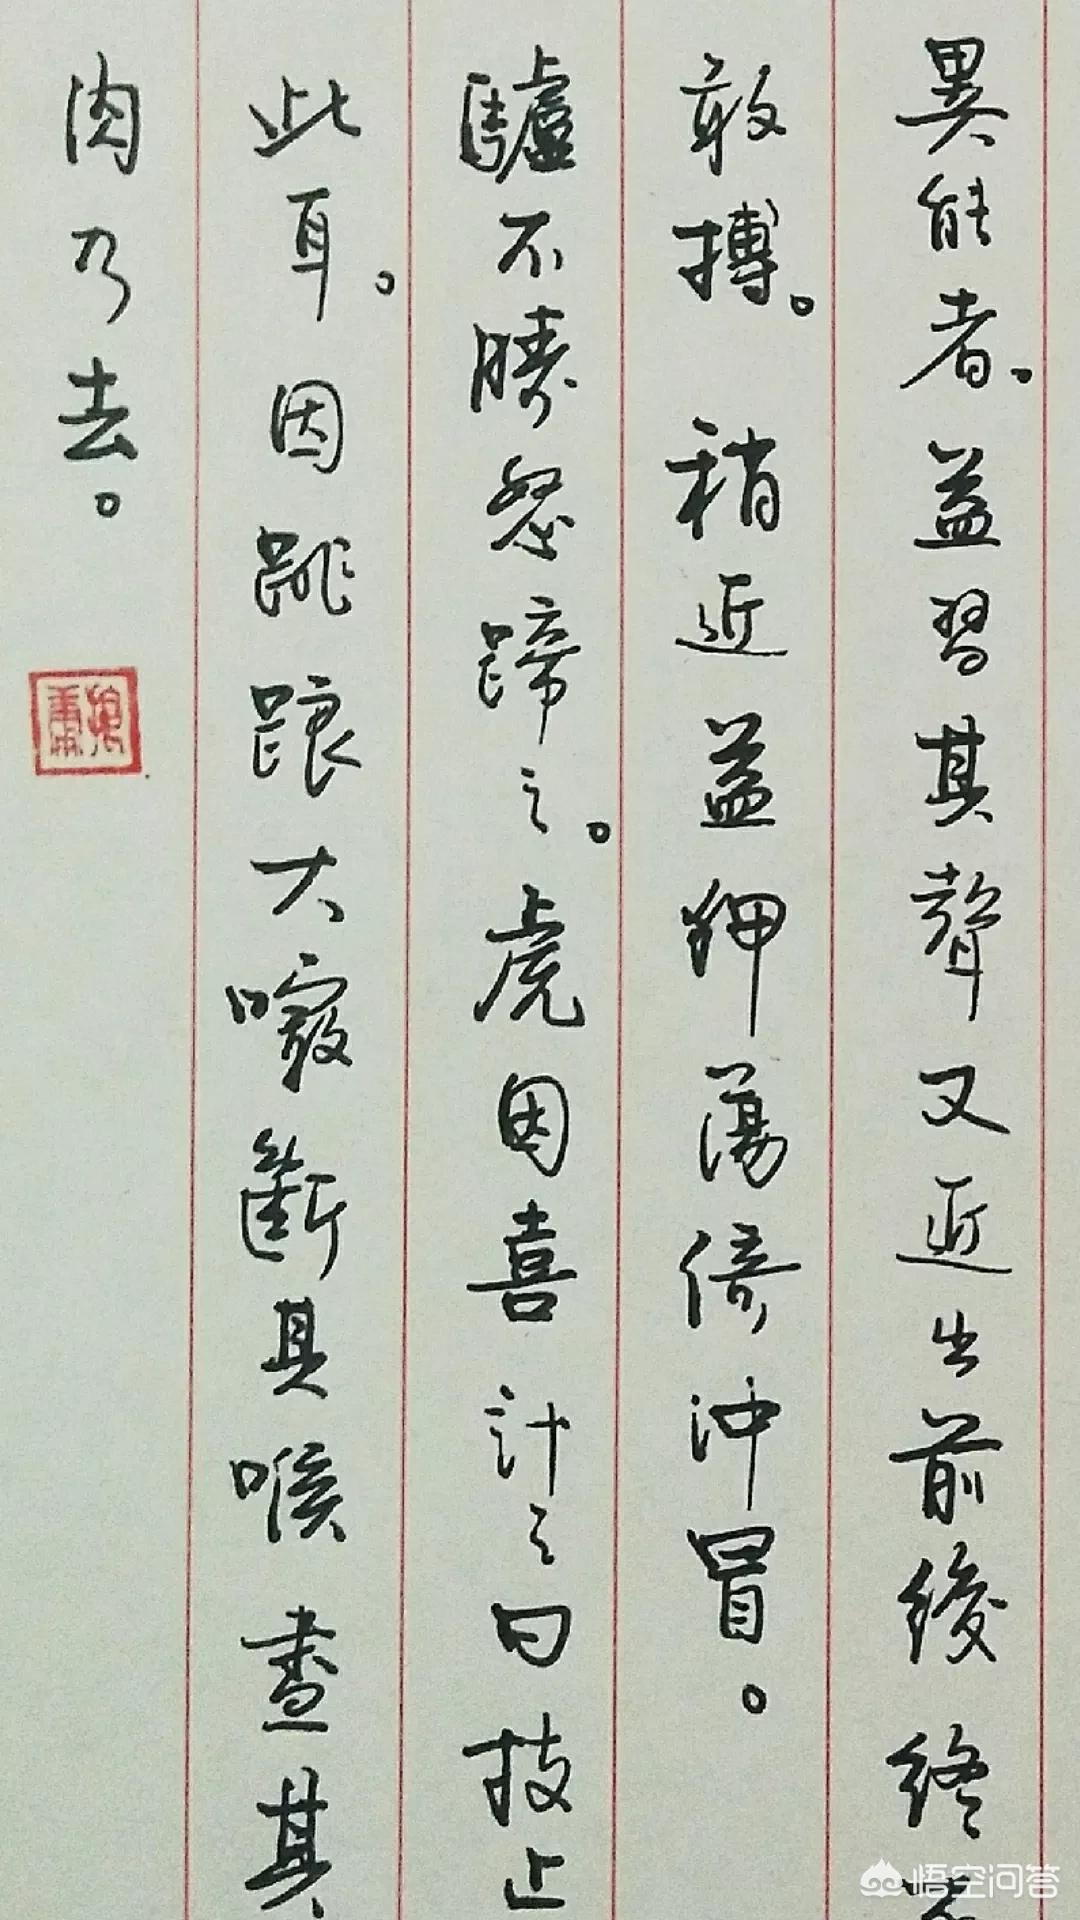 異能者。益習其聲又近出前後終
敢搏。稍近益狎蕩倚沖冒。
驢不勝怒蹄之。虎因喜計之曰技止
此耳。因跳踉大㘎斷其喉盡其
肉乃去。
悟空问答